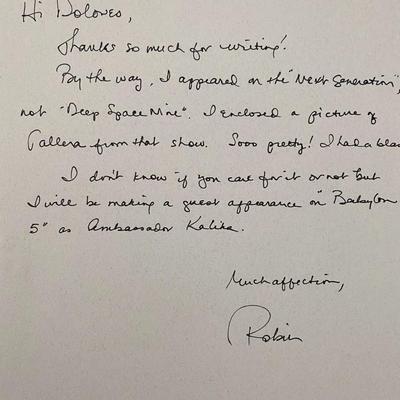 Hi Dolores,
Thanks so much for writing!
By the way, I appeared on the "Next Generation",
not "Deep Space Nine". I enclosed a picture of
Callera from that show. Sooo pretty! I had a blas
I don't know if you care for it or not but
I will be making a guest appearance on "Babylon
5" as Ambassador Kalika.
Much affection,
Robin